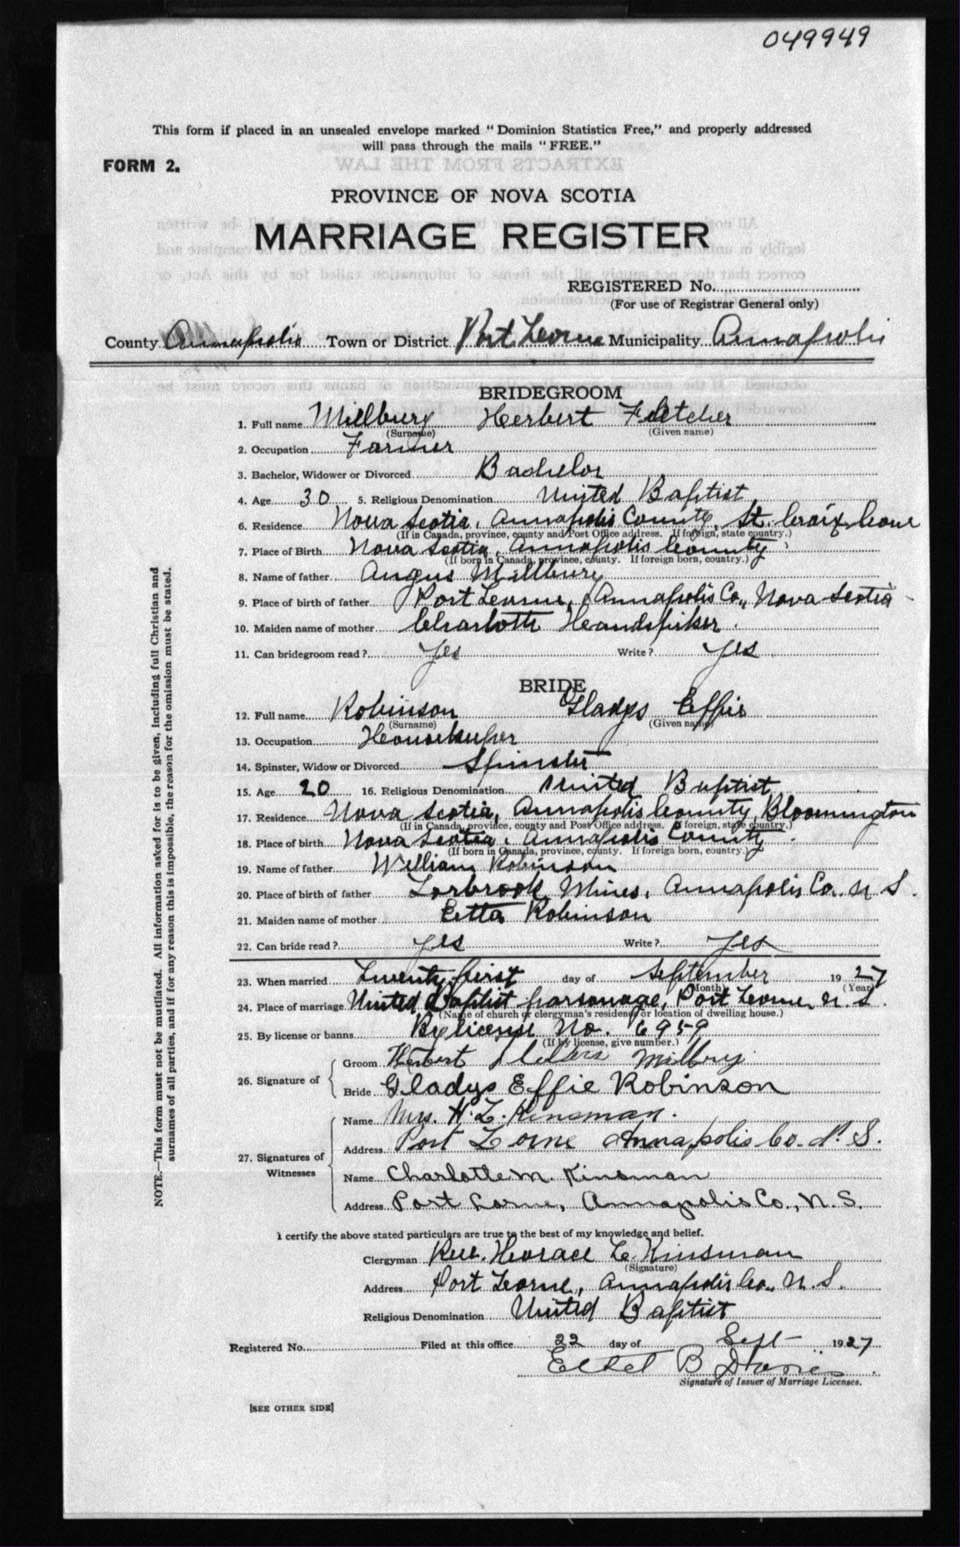 049949
This form if placed in an unsealed envelope marked "Dominion Statistics Free," and properly addressed
will pass through the mails "FREE."
FORM 2.
PROVINCE OF NOVA SCOTIA
MARRIAGE REGISTER
REGISTERED No.
(For use of Registrar General only)
County Annapolis Town or District Port Lorne Municipality Annapolis
BRIDEGROOM
1. Full name Milbury Herbert Fletcher
(Surname) (Given name)
2. Occupation Farmer
3. Bachelor, Widower or Divorced Bachelor
4. Age 30 5. Religious Denomination United Baptist
6. Residence Nova Scotia, Annapolis County, St. Croix Cove
(If in Canada, province, county and Post Office address. If foreign, state country.)
7. Place of Birth Nova Scotia, Annapolis County
(If born in Canada, province, county. If foreign born, country.)
8. Name of father Angus Millbury
9. Place of birth of father Port Lorne, Annapolis Co., Nova Scotia
10. Maiden name of mother Charlotte Handspiker
11. Can bridegroom read? Yes Write? Yes
BRIDE
12. Full name Robinson Gladys Effie
(Surname) (Given name)
13. Occupation Housekeeper
14. Spinster, Widow or Divorced Spinster
15. Age 20 16. Religious Denomination United Baptist
17. Residence Nova Scotia, Annapolis County, Bloomington
(If in Canada, province, county and Post Office address. If foreign, state country.)
18. Place of birth Nova Scotia, Annapolis County
(If born in Canada, province, county. If foreign born, country.)
19. Name of father William Robinson
20. Place of birth of father Torbrook Mines, Annapolis Co. N.S.
21. Maiden name of mother Etta Robinson
22. Can bride read? Yes Write? Yes
23. When married Twenty-first day of September 1927
(Month) (Year)
24. Place of marriage United Baptist parsonage, Port Lorne, N.S.
(Name of church or clergyman's residence or location of dwelling house.)
25. By license or banns By license No. 6959
(If by license, give number.)
26. Signature of Groom Herbert Fletcher Milbry
Bride Gladys Effie Robinson
27. Signatures of Witnesses Name Mrs. H. L. Kinsman.
Address Port Lorne Annapolis Co. N.S.
Name Charlotte M. Kinsman
Address Port Lorne, Annapolis Co., N.S.
I certify the above stated particulars are true to the best of my knowledge and belief.
Clergyman Rev. Horace L. Kinsman
(Signature)
Address Port Lorne, Annapolis Co., N.S.
Religious Denomination United Baptist
Registered No. Filed at this office 22 day of Sept 1927
Ethel B
Signature of Issuer of Marriage Licenses.
[SEE OTHER SIDE]
NOTE.—This form must not be mutilated. All information asked for is to be given, including full Christian and
surnames of all parties, and if for any reason this is impossible, the reason for the omission must be stated.